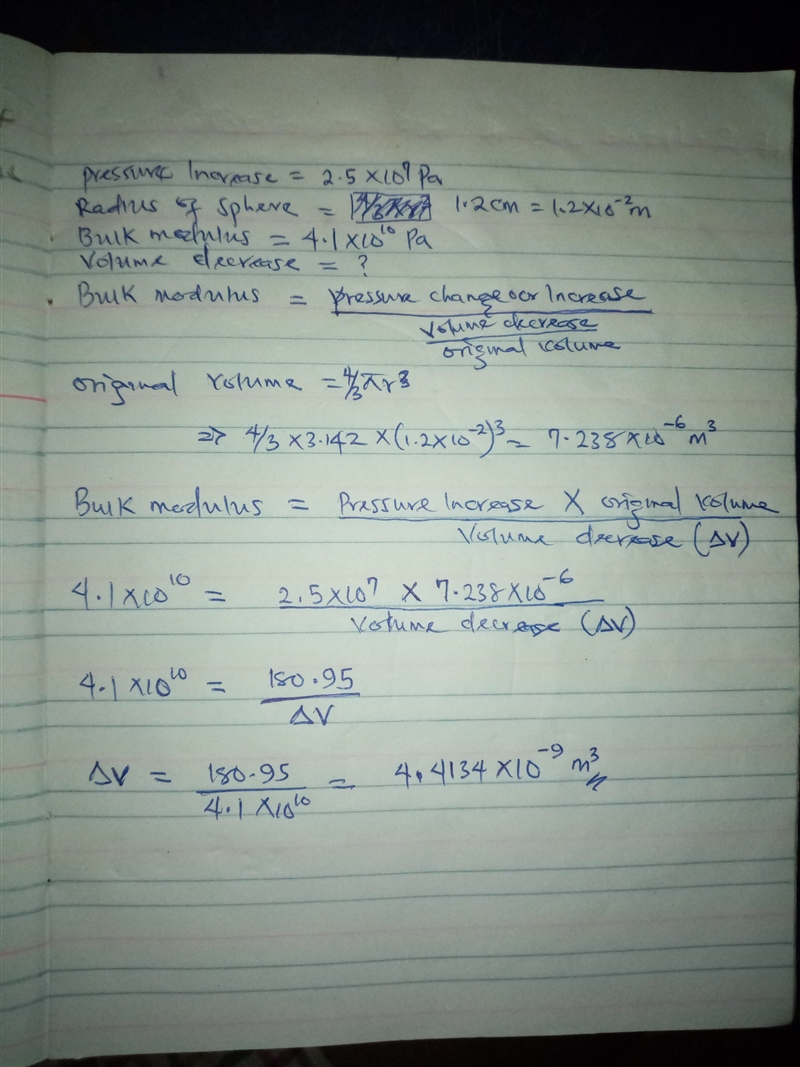 pressure Increase = 2.5 × 10⁷ Pa
Radius of sphere = 1.2cm = 1.2×10⁻² m
Bulk modulus = 4.1 × 10¹⁰ Pa
Volume decrease = ?
Bulk modulus = pressure change or Increase
volume decrease
original volume
original volume = 4/3 πr³
⇒ 4/3 × 3.142 × (1.2×10⁻²)³ = 7.238 × 10⁻⁶ m³
Bulk modulus = Pressure Increase × original volume
Volume decrease (ΔV)
4.1 × 10¹⁰ = 2.5×10⁷ × 7.238×10⁻⁶
Volume decrease (ΔV)
4.1 × 10¹⁰ = 180.95
ΔV
ΔV = 180.95 = 4.4134 × 10⁻⁹ m³
4.1 × 10¹⁰